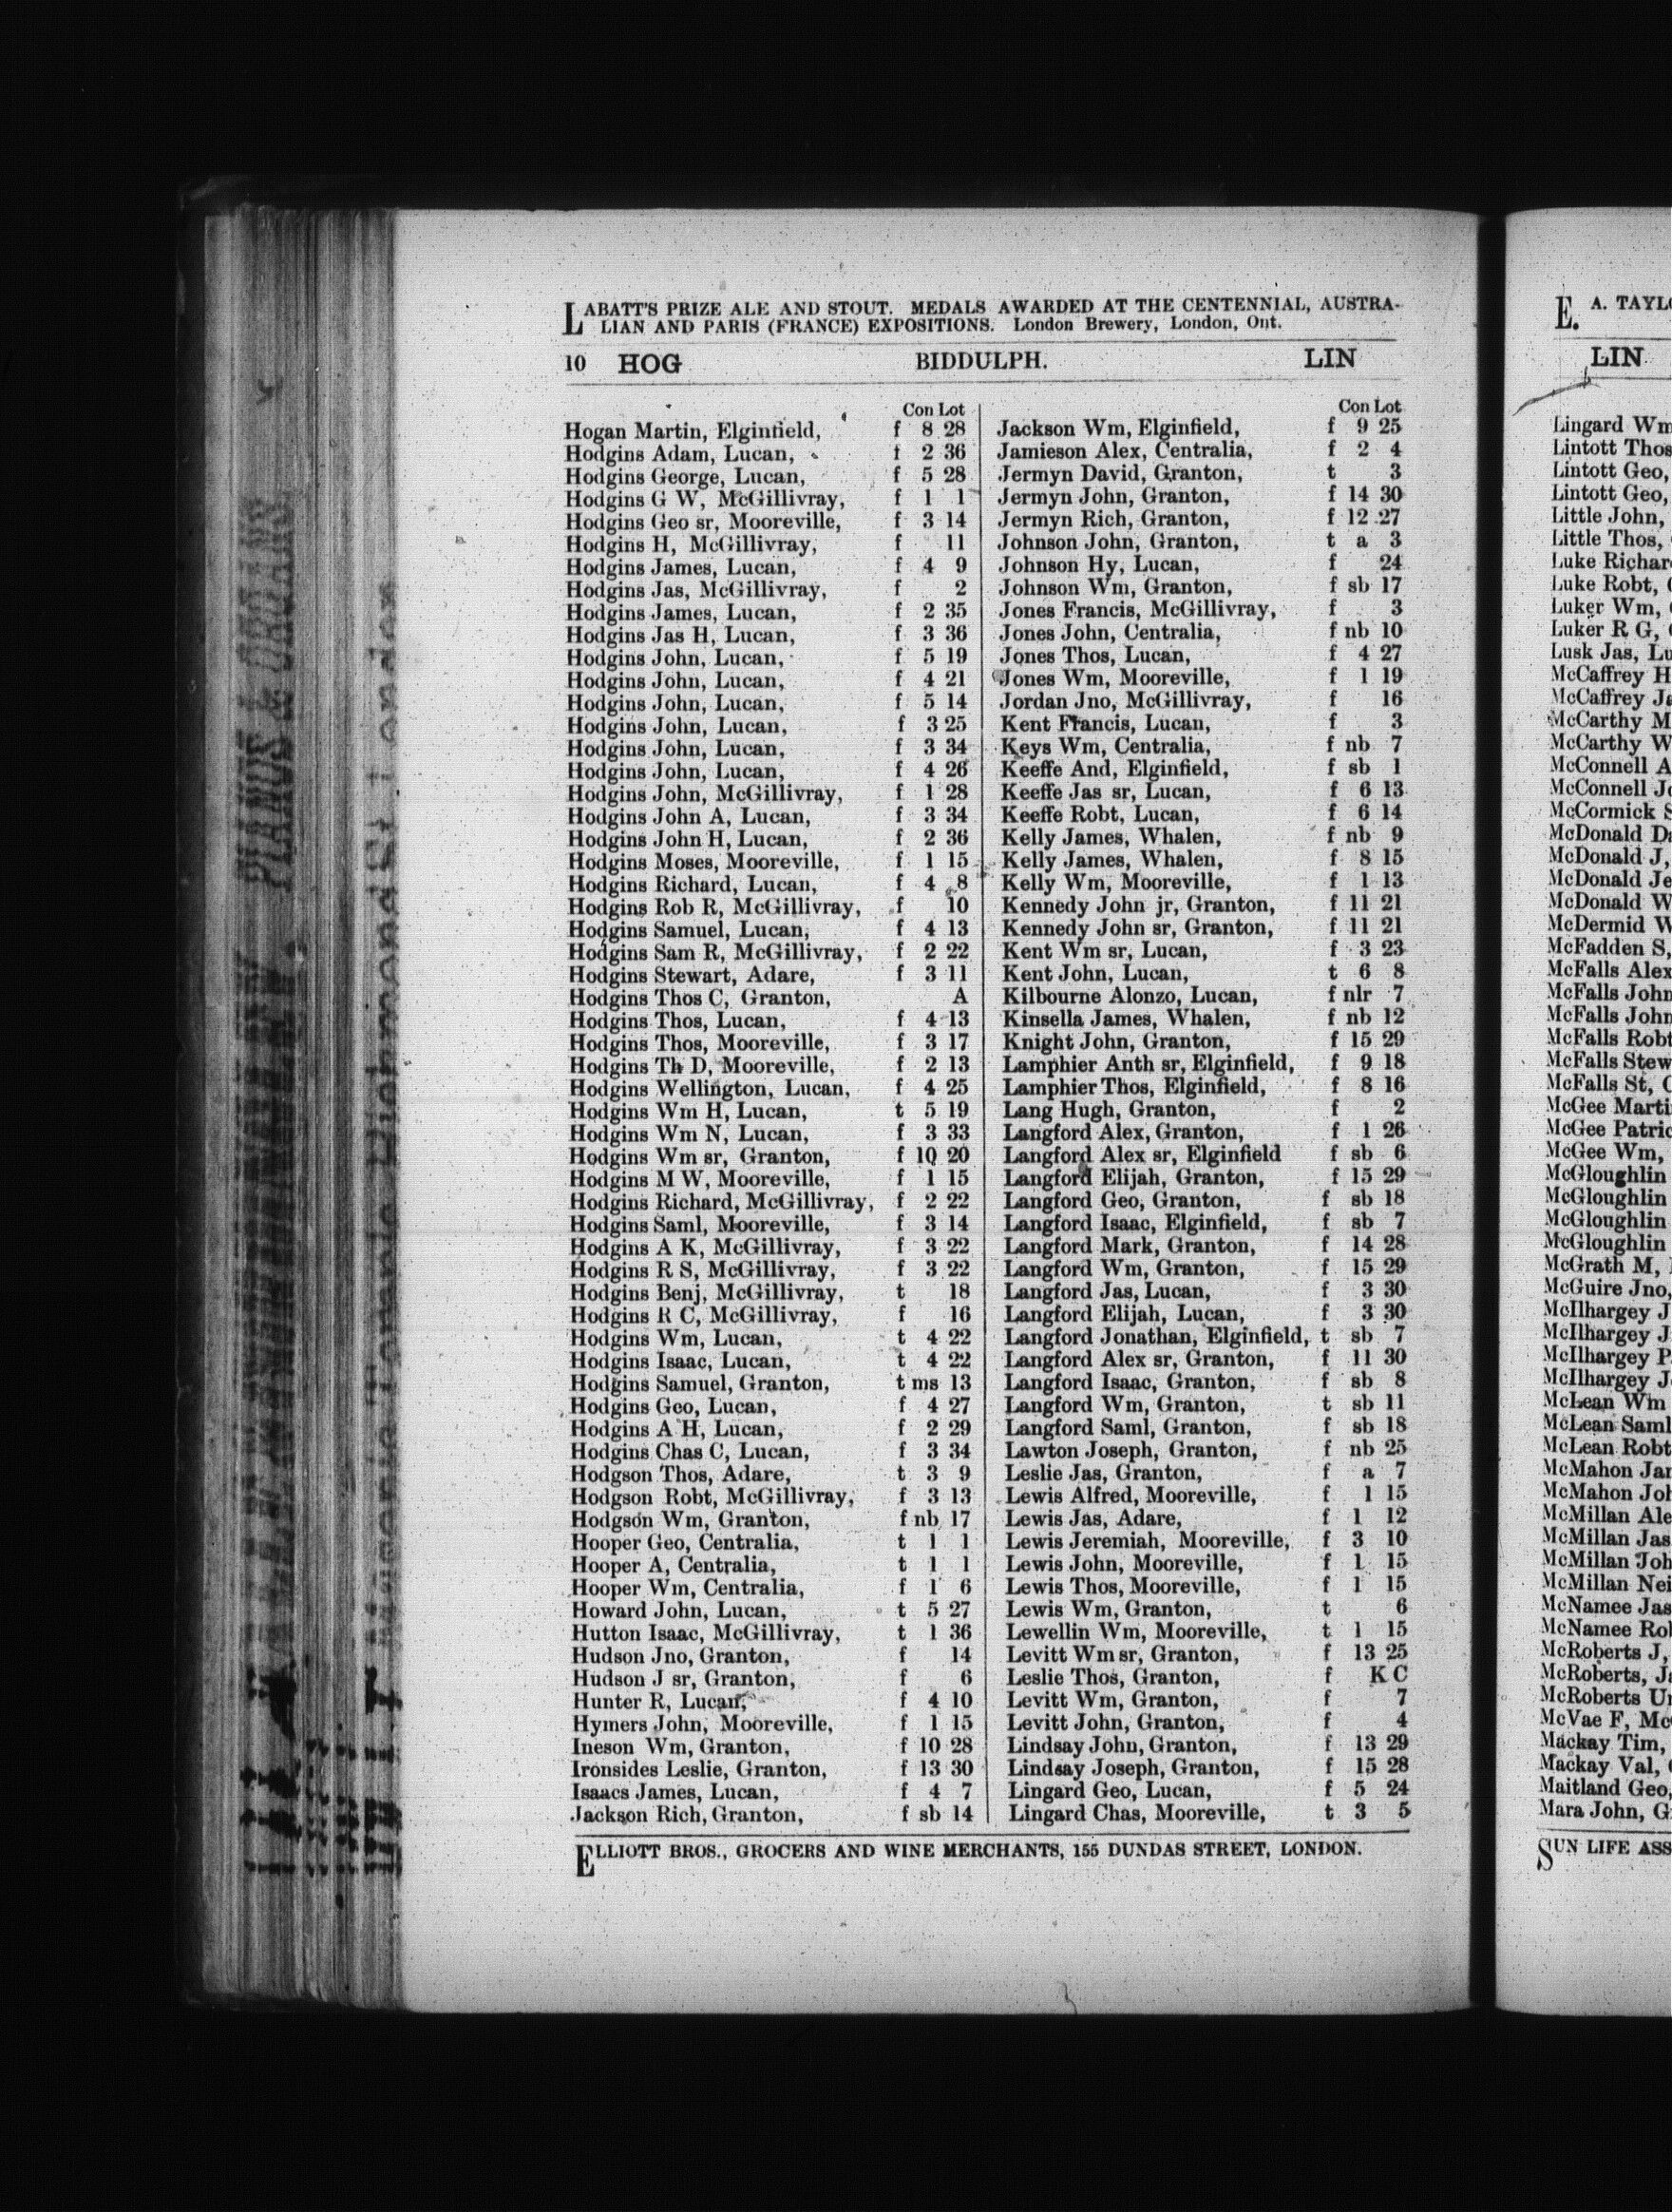 LABATT'S PRIZE ALE AND STOUT. MEDALS AWARDED AT THE CENTENNIAL, AUSTRA-
LIAN AND PARIS (FRANCE) EXPOSITIONS. London Brewery, London, Ont.
10 HOG BIDDULPH. LIN
Con Lot
Hogan Martin, Elginfield, f 8 28
Hodgins Adam, Lucan, f 2 36
Hodgins George, Lucan, f 5 28
Hodgins G W, McGillivray, f 1 1
Hodgins Geo sr, Mooreville, f 3 14
Hodgins H, McGillivray, f 11
Hodgins James, Lucan, f 4 9
Hodgins Jas, McGillivray, f 2
Hodgins James, Lucan, f 2 35
Hodgins Jas H, Lucan, f 3 36
Hodgins John, Lucan, f 5 19
Hodgins John, Lucan, f 4 21
Hodgins John, Lucan, f 5 14
Hodgins John, Lucan, f 3 25
Hodgins John, Lucan, f 3 34
Hodgins John, Lucan, f 4 26
Hodgins John, McGillivray, f 1 28
Hodgins John A, Lucan, f 3 34
Hodgins John H, Lucan, f 2 36
Hodgins Moses, Mooreville, f 1 15
Hodgins Richard, Lucan, f 4 8
Hodgins Rob R, McGillivray, f 10
Hodgins Samuel, Lucan, f 4 13
Hodgins Sam R, McGillivray, f 2 22
Hodgins Stewart, Adare, f 3 11
Hodgins Thos C, Granton, A
Hodgins Thos, Lucan, f 4 13
Hodgins Thos, Mooreville, f 3 17
Hodgins Th D, Mooreville, f 2 13
Hodgins Wellington, Lucan, f 4 25
Hodgins Wm H, Lucan, t 5 19
Hodgins Wm N, Lucan, f 3 33
Hodgins Wm sr, Granton, f 10 20
Hodgins M W, Mooreville, f 1 15
Hodgins Richard, McGillivray, f 2 22
Hodgins Saml, Mooreville, f 3 14
Hodgins A K, McGillivray, f 3 22
Hodgins R S, McGillivray, f 3 22
Hodgins Benj, McGillivray, t 18
Hodgins R C, McGillivray, f 16
Hodgins Wm, Lucan, t 4 22
Hodgins Isaac, Lucan, t 4 22
Hodgins Samuel, Granton, t ms 13
Hodgins Geo, Lucan, f 4 27
Hodgins A H, Lucan, f 2 29
Hodgins Chas C, Lucan, f 3 34
Hodgson Thos, Adare, t 3 9
Hodgson Robt, McGillivray, f 3 13
Hodgson Wm, Granton, f nb 17
Hooper Geo, Centralia, t 1 1
Hooper A, Centralia, t 1 1
Hooper Wm, Centralia, f 1 6
Howard John, Lucan, t 5 27
Hutton Isaac, McGillivray, t 1 36
Hudson Jno, Granton, f 14
Hudson J sr, Granton, f 6
Hunter R, Lucan, f 4 10
Hymers John, Mooreville, f 1 15
Ineson Wm, Granton, f 10 28
Ironsides Leslie, Granton, f 13 30
Isaacs James, Lucan, f 4 7
Jackson Rich, Granton, f sb 14
Con Lot
Jackson Wm, Elginfield, f 9 25
Jamieson Alex, Centralia, f 2 4
Jermyn David, Granton, t 3
Jermyn John, Granton, f 14 30
Jermyn Rich, Granton, f 12 27
Johnson John, Granton, t a 3
Johnson Hy, Lucan, f 24
Johnson Wm, Granton, f sb 17
Jones Francis, McGillivray, f 3
Jones John, Centralia, f nb 10
Jones Thos, Lucan, f 4 27
Jones Wm, Mooreville, f 1 19
Jordan Jno, McGillivray, f 16
Kent Francis, Lucan, f 3
Keys Wm, Centralia, f nb 7
Keeffe And, Elginfield, f sb 1
Keeffe Jas sr, Lucan, f 6 13
Keeffe Robt, Lucan, f 6 14
Kelly James, Whalen, f nb 9
Kelly James, Whalen, f 8 15
Kelly Wm, Mooreville, f 1 13
Kennedy John jr, Granton, f 11 21
Kennedy John sr, Granton, f 11 21
Kent Wm sr, Lucan, f 3 23
Kent John, Lucan, t 6 8
Kilbourne Alonzo, Lucan, f nlr 7
Kinsella James, Whalen, f nb 12
Knight John, Granton, f 15 29
Lamphier Anth sr, Elginfield, f 9 18
Lamphier Thos, Elginfield, f 8 16
Lang Hugh, Granton, f 2
Langford Alex, Granton, f 1 26
Langford Alex sr, Elginfield f sb 6
Langford Elijah, Granton, f 15 29
Langford Geo, Granton, f sb 18
Langford Isaac, Elginfield, f sb 7
Langford Mark, Granton, f 14 28
Langford Wm, Granton, f 15 29
Langford Jas, Lucan, f 3 30
Langford Elijah, Lucan, f 3 30
Langford Jonathan, Elginfield, t sb 7
Langford Alex sr, Granton, f 11 30
Langford Isaac, Granton, f sb 8
Langford Wm, Granton, t sb 11
Langford Saml, Granton, f sb 18
Lawton Joseph, Granton, f nb 25
Leslie Jas, Granton, f a 7
Lewis Alfred, Mooreville, f 1 15
Lewis Jas, Adare, f 1 12
Lewis Jeremiah, Mooreville, f 3 10
Lewis John, Mooreville, f 1 15
Lewis Thos, Mooreville, f 1 15
Lewis Wm, Granton, t 6
Lewellin Wm, Mooreville, t 1 15
Levitt Wm sr, Granton, f 13 25
Leslie Thos, Granton, f K C
Levitt Wm, Granton, f 7
Levitt John, Granton, f 4
Lindsay John, Granton, f 13 29
Lindsay Joseph, Granton, f 15 28
Lingard Geo, Lucan, f 5 24
Lingard Chas, Mooreville, t 3 5
ELLIOTT BROS., GROCERS AND WINE MERCHANTS, 155 DUNDAS STREET, LONDON.
E. A. TAYL
LIN
Lingard Wm
Lintott Thos
Lintott Geo,
Lintott Geo,
Little John,
Little Thos,
Luke Richar
Luke Robt,
Luker Wm,
Luker R G,
Lusk Jas, Lu
McCaffrey H
McCaffrey Ja
McCarthy M
McCarthy W
McConnell A
McConnell Jo
McCormick S
McDonald Da
McDonald J,
McDonald Je
McDonald W
McDermid W
McFadden S,
McFalls Alex
McFalls John
McFalls John
McFalls Robt
McFalls Stew
McFalls St,
McGee Marti
McGee Patric
McGee Wm,
McGloughlin
McGloughlin
McGloughlin
McGloughlin
McGrath M,
McGuire Jno,
McIlhargey J
McIlhargey J
McIlhargey P
McIlhargey J
McLean Wm
McLean Saml
McLean Robt
McMahon Jam
McMahon Joh
McMillan Ale
McMillan Jas
McMillan Joh
McMillan Nei
McNamee Jas
McNamee Rob
McRoberts J,
McRoberts, Ja
McRoberts Ur
McVae F, Mc
Mackay Tim,
Mackay Val,
Maitland Geo,
Mara John, G
SUN LIFE ASS